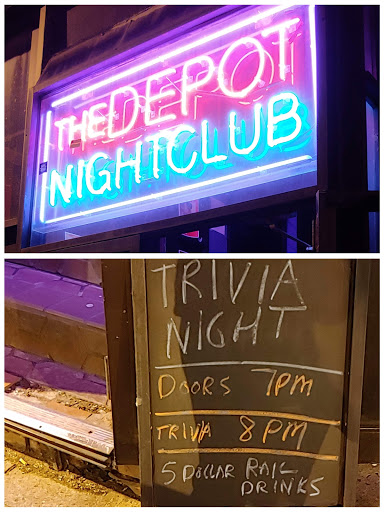 THE DEPOT
NIGHTCLUB
TRIVIA
NIGHT
DOORS 7PM
TRIVIA 8PM
5 DOLLAR RAIL
DRINKS